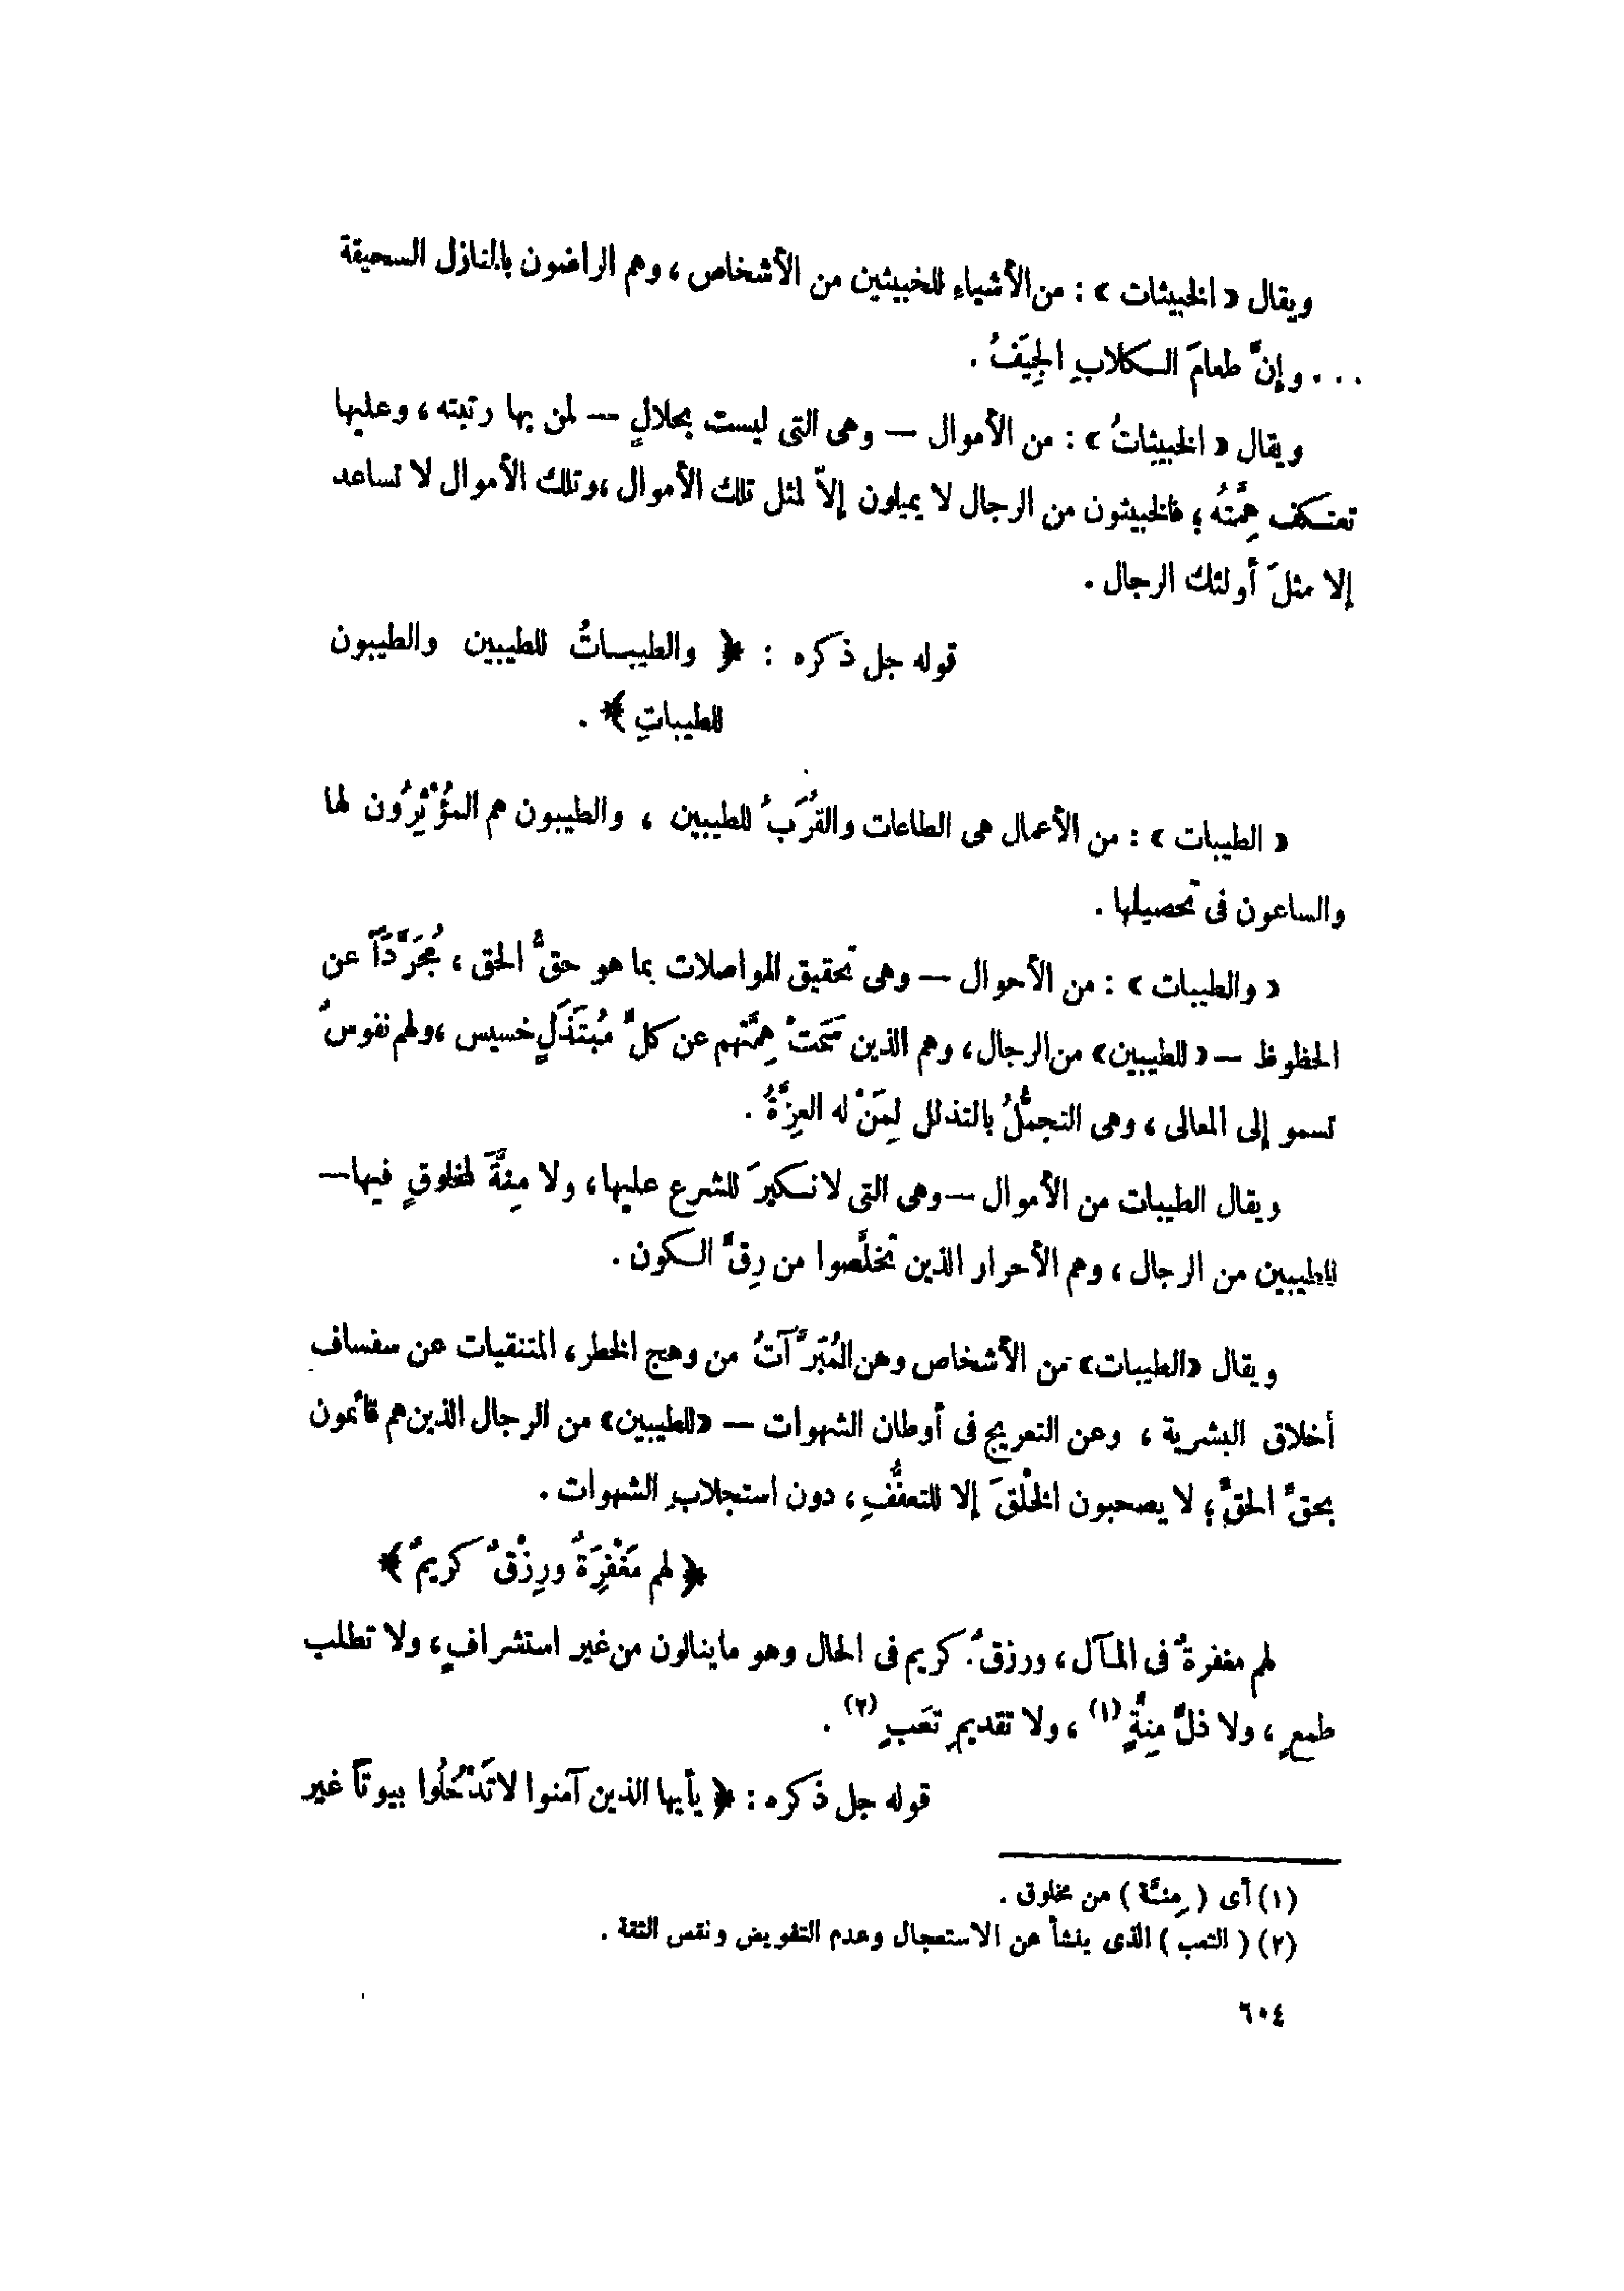 ويقال « الخبيثات » : من الأشياء للخبيثين من الأشخاص ، وهم الراضون بالمنازل السحيقة
. . . وإنَّ طعامَ الكلابِ الجِيَفُ .
ويقال « الخبيثاتُ » : من الأموال — وهى التى ليست بحلالٍ — لمن بها رتبته ، وعليها
تعتكف هِمَّتُهُ ؛ فالخبيثون من الرجال لا يميلون إلاَّ لمثل تلك الأموال ، وتلك الأموال لا تساعد
إلا مثلَ أولئك الرجال .
قوله جل ذكره : ﴿ والطيباتُ للطيبين والطيبون
للطيباتِ ﴾ .
« الطيبات » : من الأعمال هى الطاعات والقُرَبُ للطيبين ، والطيبون هم المؤْثِرُون لها
والساعون فى تحصيلها .
« والطيبات » : من الأحوال — وهى تحقيق المواصلات بما هو حقُّ الحق ، مُجَرَّدَاً عن
الحظوظ — « للطيبين » من الرجال ، وهم الذين سَمَتْ هِمَّتُهم عن كلِّ مُبتَذَلٍ خسيس ، ولهم نفوسٌ
تسمو إلى المعالى ، وهى التجمُّلُ بالتذلل لِمَنْ له العِزَّةُ .
ويقال الطيبات من الأموال — وهى التى لا نكيرَ للشرع عليها ، ولا مِنَّةَ لمخلوقٍ فيها —
للطيبين من الرجال ، وهم الأحرار الذين تخلَّصوا من رِقِّ الكون .
ويقال « الطيبات » من الأشخاص وهن المُبَرَّآتُ من وهج الخطر ، المتنقيات عن سفساف
أخلاق البشرية ، وعن التعريج فى أوطان الشهوات — « للطيبين » من الرجال الذين هم قائمون
بحقِّ الحقِّ ؛ لا يصحبون الخلْقَ إلا للتعفُّفِ ، دون استجلابِ الشهوات .
﴿ لهم مَغْفِرَةٌ ورِزْقٌ كريمٌ ﴾
لهم مغفرةٌ فى المآل ، ورزقٌ كريم فى الحال وهو ما ينالون من غير استشرافٍ ، ولا تطلب
طمعٍ ، ولا ذلِّ مِنَّةٍ (١) ، ولا تقديمِ تعَبٍ (٢) .
قوله جل ذكره : ﴿ يأيها الذين آمنوا لا تَدْخُلُوا بيوتاً غير
(١) أى ( مِنَّة ) من مخلوق .
(٢) ( التعب ) الذى ينشأ عن الاستعجال وعدم التفويض ونقص الثقة .
٦٠٤